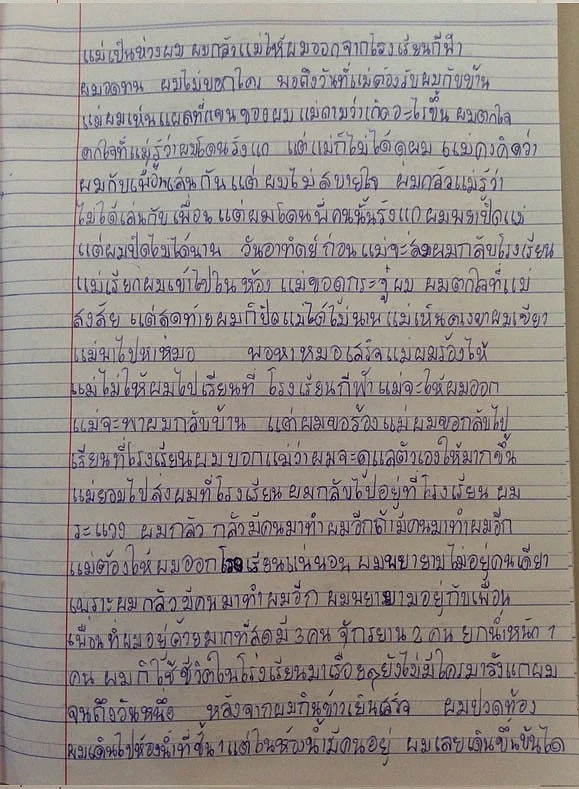 แม่เป็นห่วงผม ผมกลัวแม่ให้ผมออกจากโรงเรียนกีฬา
ผมอดทน ผมไม่บอกใคร พอถึงวันที่แม่ต้องรับผมกับบ้าน
แม่ผมเห็นแผลที่แขนของผม แม่ถามว่าเกิดอะไรขึ้น ผมตกใจ
ตกใจที่แม่รู้ว่าผมโดนรังแก แต่แม่ก็ไม่ได้ดุผม แม่คงคิดว่า
ผมกับเพื่อนเล่นกัน แต่ ผมไม่สบายใจ ผมกลัวแม่รู้ว่า
ไม่ได้เล่นกับเพื่อน แต่ผมโดนพี่คนนั้นรังแก ผมพยาปิดแม่
แต่ผมปิดไม่ได้นาน วันอาทิตย์ก่อนแม่จะส่งผมกลับโรงเรียน
แม่เรียกผมเข้าไปในห้อง แม่ขอดูกระจู๋ผม ผมตกใจที่แม่
สงสัย แต่สุดท้ายผมก็ปิดแม่ได้ไม่นาน แม่เห็นผมเขียว
แม่พาไปหาหมอ พอหาหมอเสร็จแม่ผมร้องไห้
แม่ไม่ให้ผมไปเรียนที่ โรงเรียนกีฬา แม่จะให้ผมออก
แม่จะพาผมกลับบ้าน แต่ผมขอร้องแม่ ผมขอกลับไป
เรียนที่โรงเรียน ผมบอกแม่ว่าผมจะดูแลตัวเองให้มากขึ้น
แม่ยอมไปส่งผมที่โรงเรียน ผมกลับไปอยู่ที่โรงเรียน ผม
ระแวง ผมกลัว กลัวมีคนมาทำผมอีกถ้ามีคนมาทำผมอีก
แม่ต้องให้ผมออกโรงเรียนแน่นอน ผมพยายามไม่อยู่คนเดียว
เพราะผมกลัวมีคนมาทำผมอีก ผมพยายามอยู่กับเพื่อน
เพื่อนที่ผมอยู่ด้วยมากที่สุดมี 3 คน จักรยาน 2 คน ยกน้ำหนัก 1
คน ผมก็ใช้ชีวิตในโรงเรียนมาเรื่อยๆ ยังไม่มีใครมารังแกผม
จนถึงวันหนึ่ง หลังจากผมกินข้าวเย็นเสร็จ ผมปวดท้อง
ผมเดินไปห้องน้ำที่ชั้น 1 แต่ในห้องน้ำมีคนอยู่ ผมเลยเดินขึ้นบันได